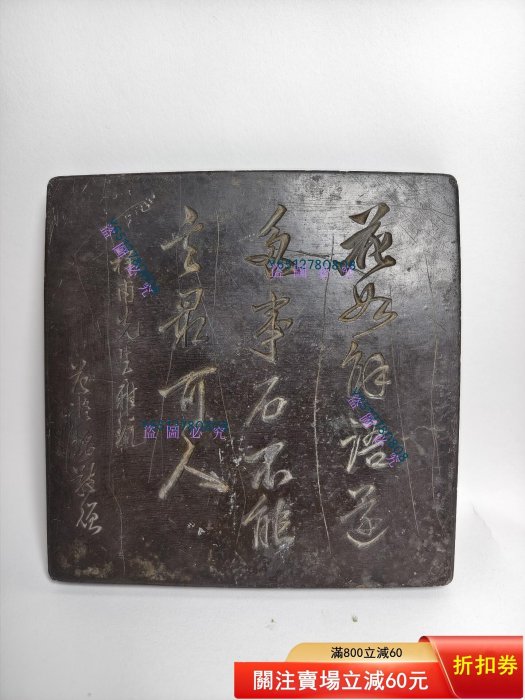 花如解語還
多事石不能
言最可人
先生雅
盜圖必究
盜圖必究
盜圖必究
盜圖必究
盜圖必究
滿800立減60
關注賣場立減60元
折扣券